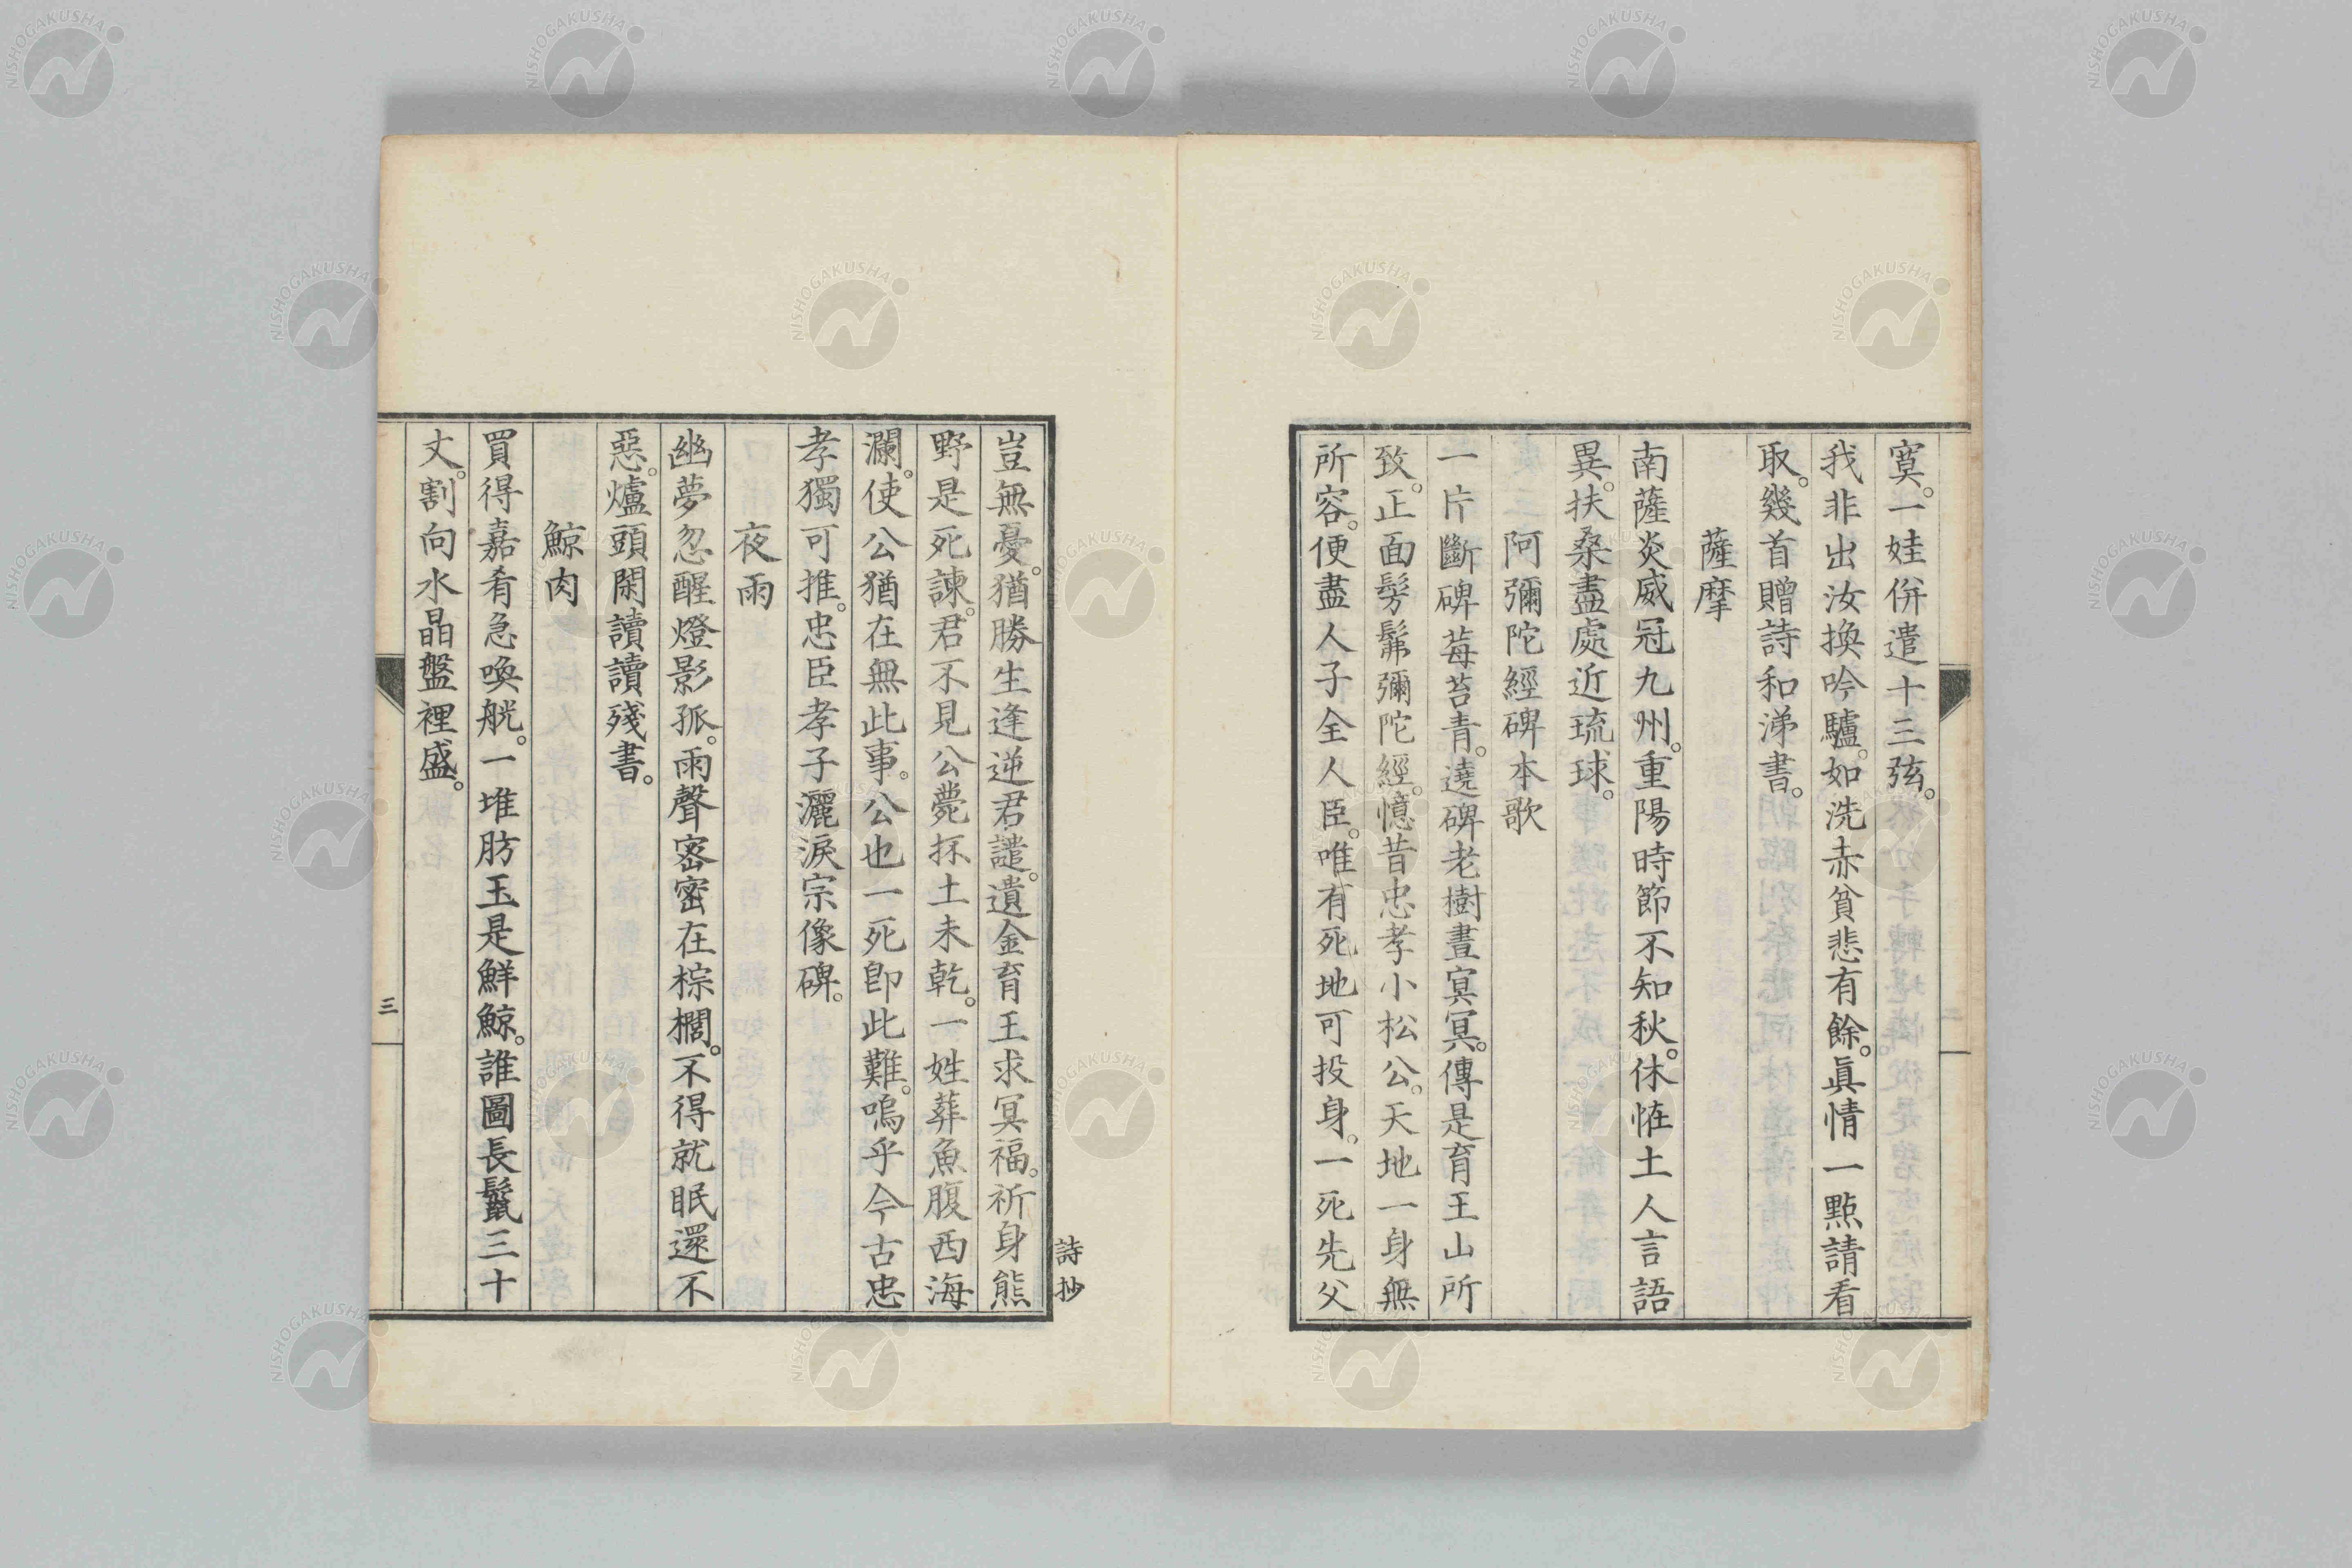 寞。一娃併遣十三弦。
我非出汝換吟驢。如洗赤貧悲有餘。眞情一點請看
取。幾首贈詩和涕書。
薩摩
南薩炎威冠九州。重陽時節不知秋。休恠土人言語
異。扶桑盡處近琉球。
阿彌陀經碑本歌
一片斷碑莓苔青。遶碑老樹晝冥冥。傳是育王山所
致。正面髣髴彌陀經。憶昔忠孝小松公。天地一身無
所容。便盡人子全人臣。唯有死地可投身。一死先父
豈無憂。猶勝生逢逆君譴。遺金育王求冥福。祈身熊
野是死諫。君不見公薨抔土未乾。一姓葬魚腹西海
瀾。使公猶在無此事。公也一死卽此難。嗚乎今古忠
孝獨可推。忠臣孝子灑淚宗像碑。
夜雨
幽夢忽醒燈影孤。雨聲密密在棕櫚。不得就眠還不
惡。爐頭閑讀讀殘書。
鯨肉
買得嘉肴急喚觥。一堆肪玉是鮮鯨。誰圖長鬣三十
丈。割向水晶盤裡盛。
詩抄
三
NISHOGAKUSHA